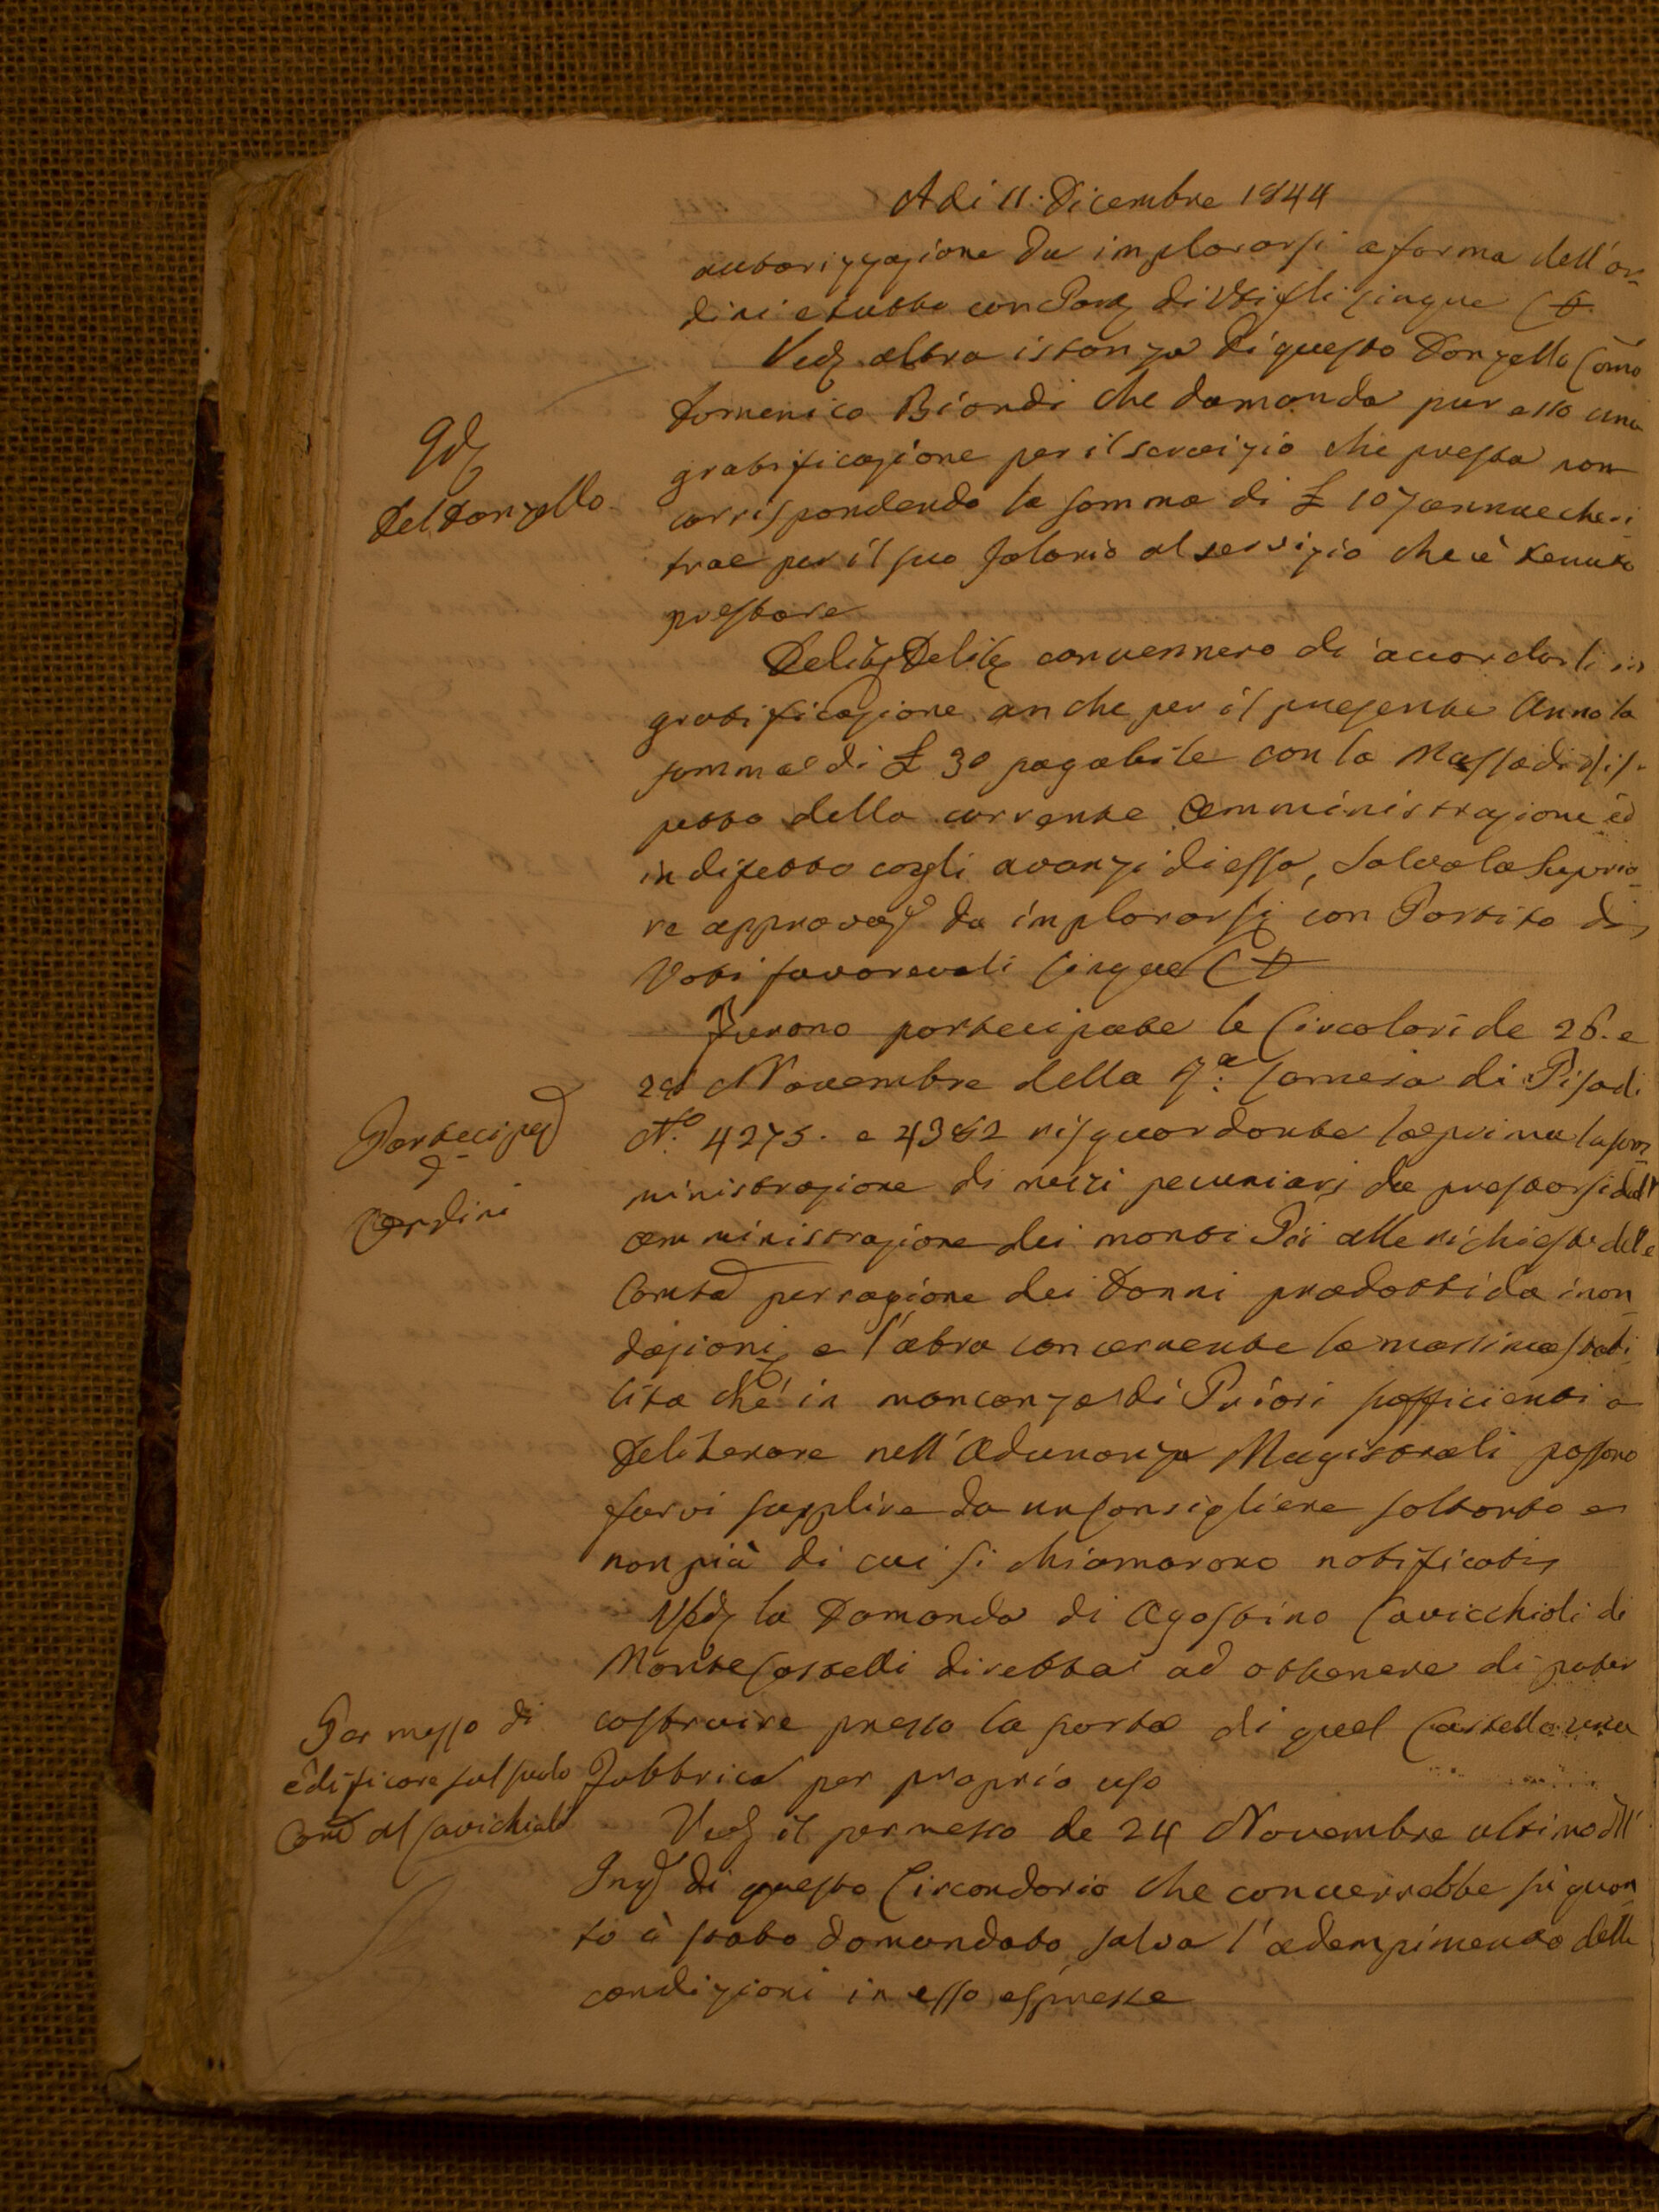 Adi 11. Dicembre 1844
autorizzazione da implorarsi a forma dell'or-
dini e tutto con Par di Vti fli cinque C
Ved altra istanza di questo Donzello Como
Domenico Biondi che domanda pur esso una
gratificazione per il servizio che presta non
Id
del Donzello
corrispondendo la somma di £ 107 annue che si
trae per il suo salario al servizio che è tenuto
prestare
Delib Delib convennero di accordarli in
gratificazione anche per il presente Anno la
somma di £ 30 pagabile con la Massa di ris-
petto della corrente Amministrazione ed
in difetto cogli avanzi di essa, salva la Superio-
re approvaz da implorarsi con Partito di
Voti favorevoli cinque C
Furono partecipate le Circolari de 26. e
29 Novembre della
Camera di Pisa di
Partecipaz
d'
Ordini
N.° 4275. e 4382 risguardante la prima la som-
ministrazione di mezzi pecuniari da prestarsi dall'
amministrazione dei monti Pii alle richieste delle
Comtà per ragione dei Danni prodotti da inon-
dazioni, e l'altra concernente la massima stabi-
lita che in mancanza di Priori sufficienti a
Deliberare nell'Adunanze Magistrali possono
farvi supplire da un Consigliere soltanto e
non più di cui si chiamarono notificati
Ved la Domanda di Agostino Cavicchioli di
Monte Castelli diretta ad ottenere di poter
Permesso di
edificare sul suolo
Comé al Cavichioli
costruire presso la porta di quel Castello una
Fabbrica per proprio uso
Ved il permesso de 24 Novembre ultimo dll'
Ing di questo Circondario che converrebbe in quan-
to è stato domandato salva l'adempimento delle
condizioni in esso espresse